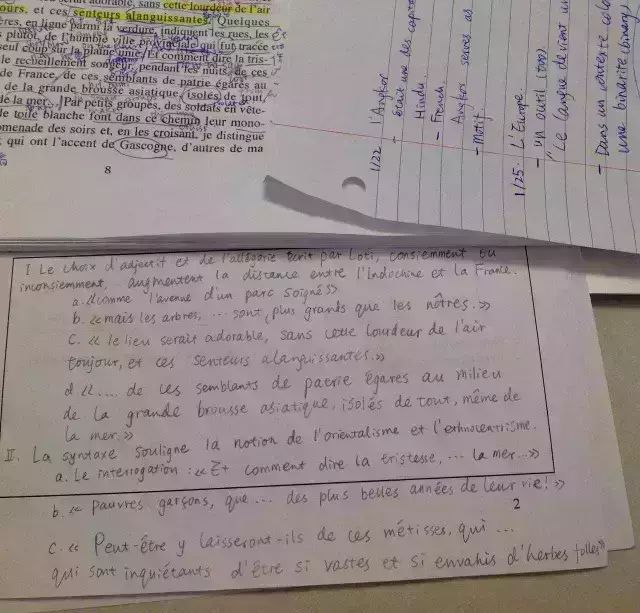 cette lourdeur de l'air
ours, et ces senteurs alanguissantes. Quelques
ères, en ligne parmi la verdure, indiquent les rues, les
plutôt, de l'humble ville provinciale qui fut tracée
seul coup sur la plaine unie. Et comment dire la tris-
le recueillement songeur, pendant les nuits, de ces
de France, de ces semblants de patrie égarés au
de la grande brousse asiatique, isolés de tout,
de la mer... Par petits groupes, des soldats en vête-
de toile blanche font dans ce chemin leur mono-
omenade des soirs et, en les croisant, je distingue
qui ont l'accent de Gascogne, d'autres de ma
8
1/22 l'Angkor
Hindu.
- French
Angkor serves as
- Motif
1/25. L'Europe
- un outil (tool)
"Le langue devient un
- Dans un contexte colo
une binarité (binary)
I Le choix d'adjectif et de l'allégorie écrit par Loti, consiemment ou
inconsiemment, augmentent la distance entre l'Indochine et la France.
a. «comme l'avenue d'un parc soigné»
b. «mais les arbres, ... sont, plus grands que les nôtres.»
C. « le lieu serait adorable, sans cette lourdeur de l'air
toujour, et ces senteurs alanguissantes.»
d «.... de ces semblants de patrie égarés au milieu
de la grande brousse asiatique, isolés de tout, même de
la mer.»
II. La syntaxe souligne la notion de l'orientalisme et l'ethnocentrisme.
a. Le interrogation : «Et comment dire la tristesse, ... la mer...»
b. « pauvres garçons, que ... des plus belles années de leur vie! »
2
C. « Peut-être y laisseront-ils de ces métisses, qui ...
qui sont inquiétants d'être si vastes et si envahis d'herbes folles»